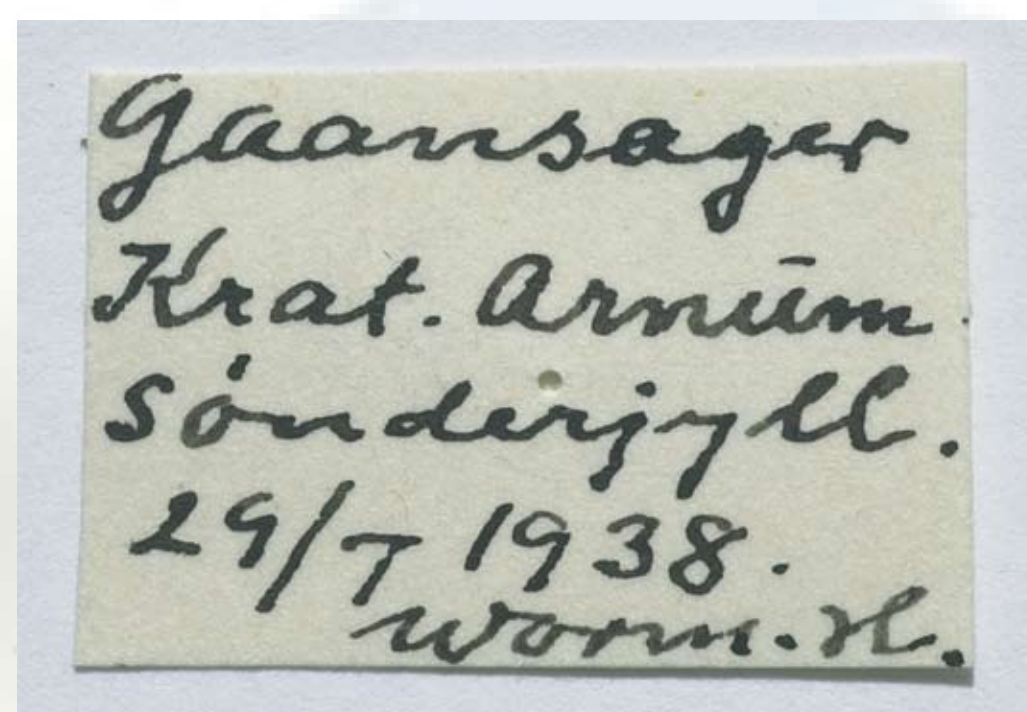 Gaansager
Krat. Arnum
Sønderjyll.
29/7 1938.
Worm. H.